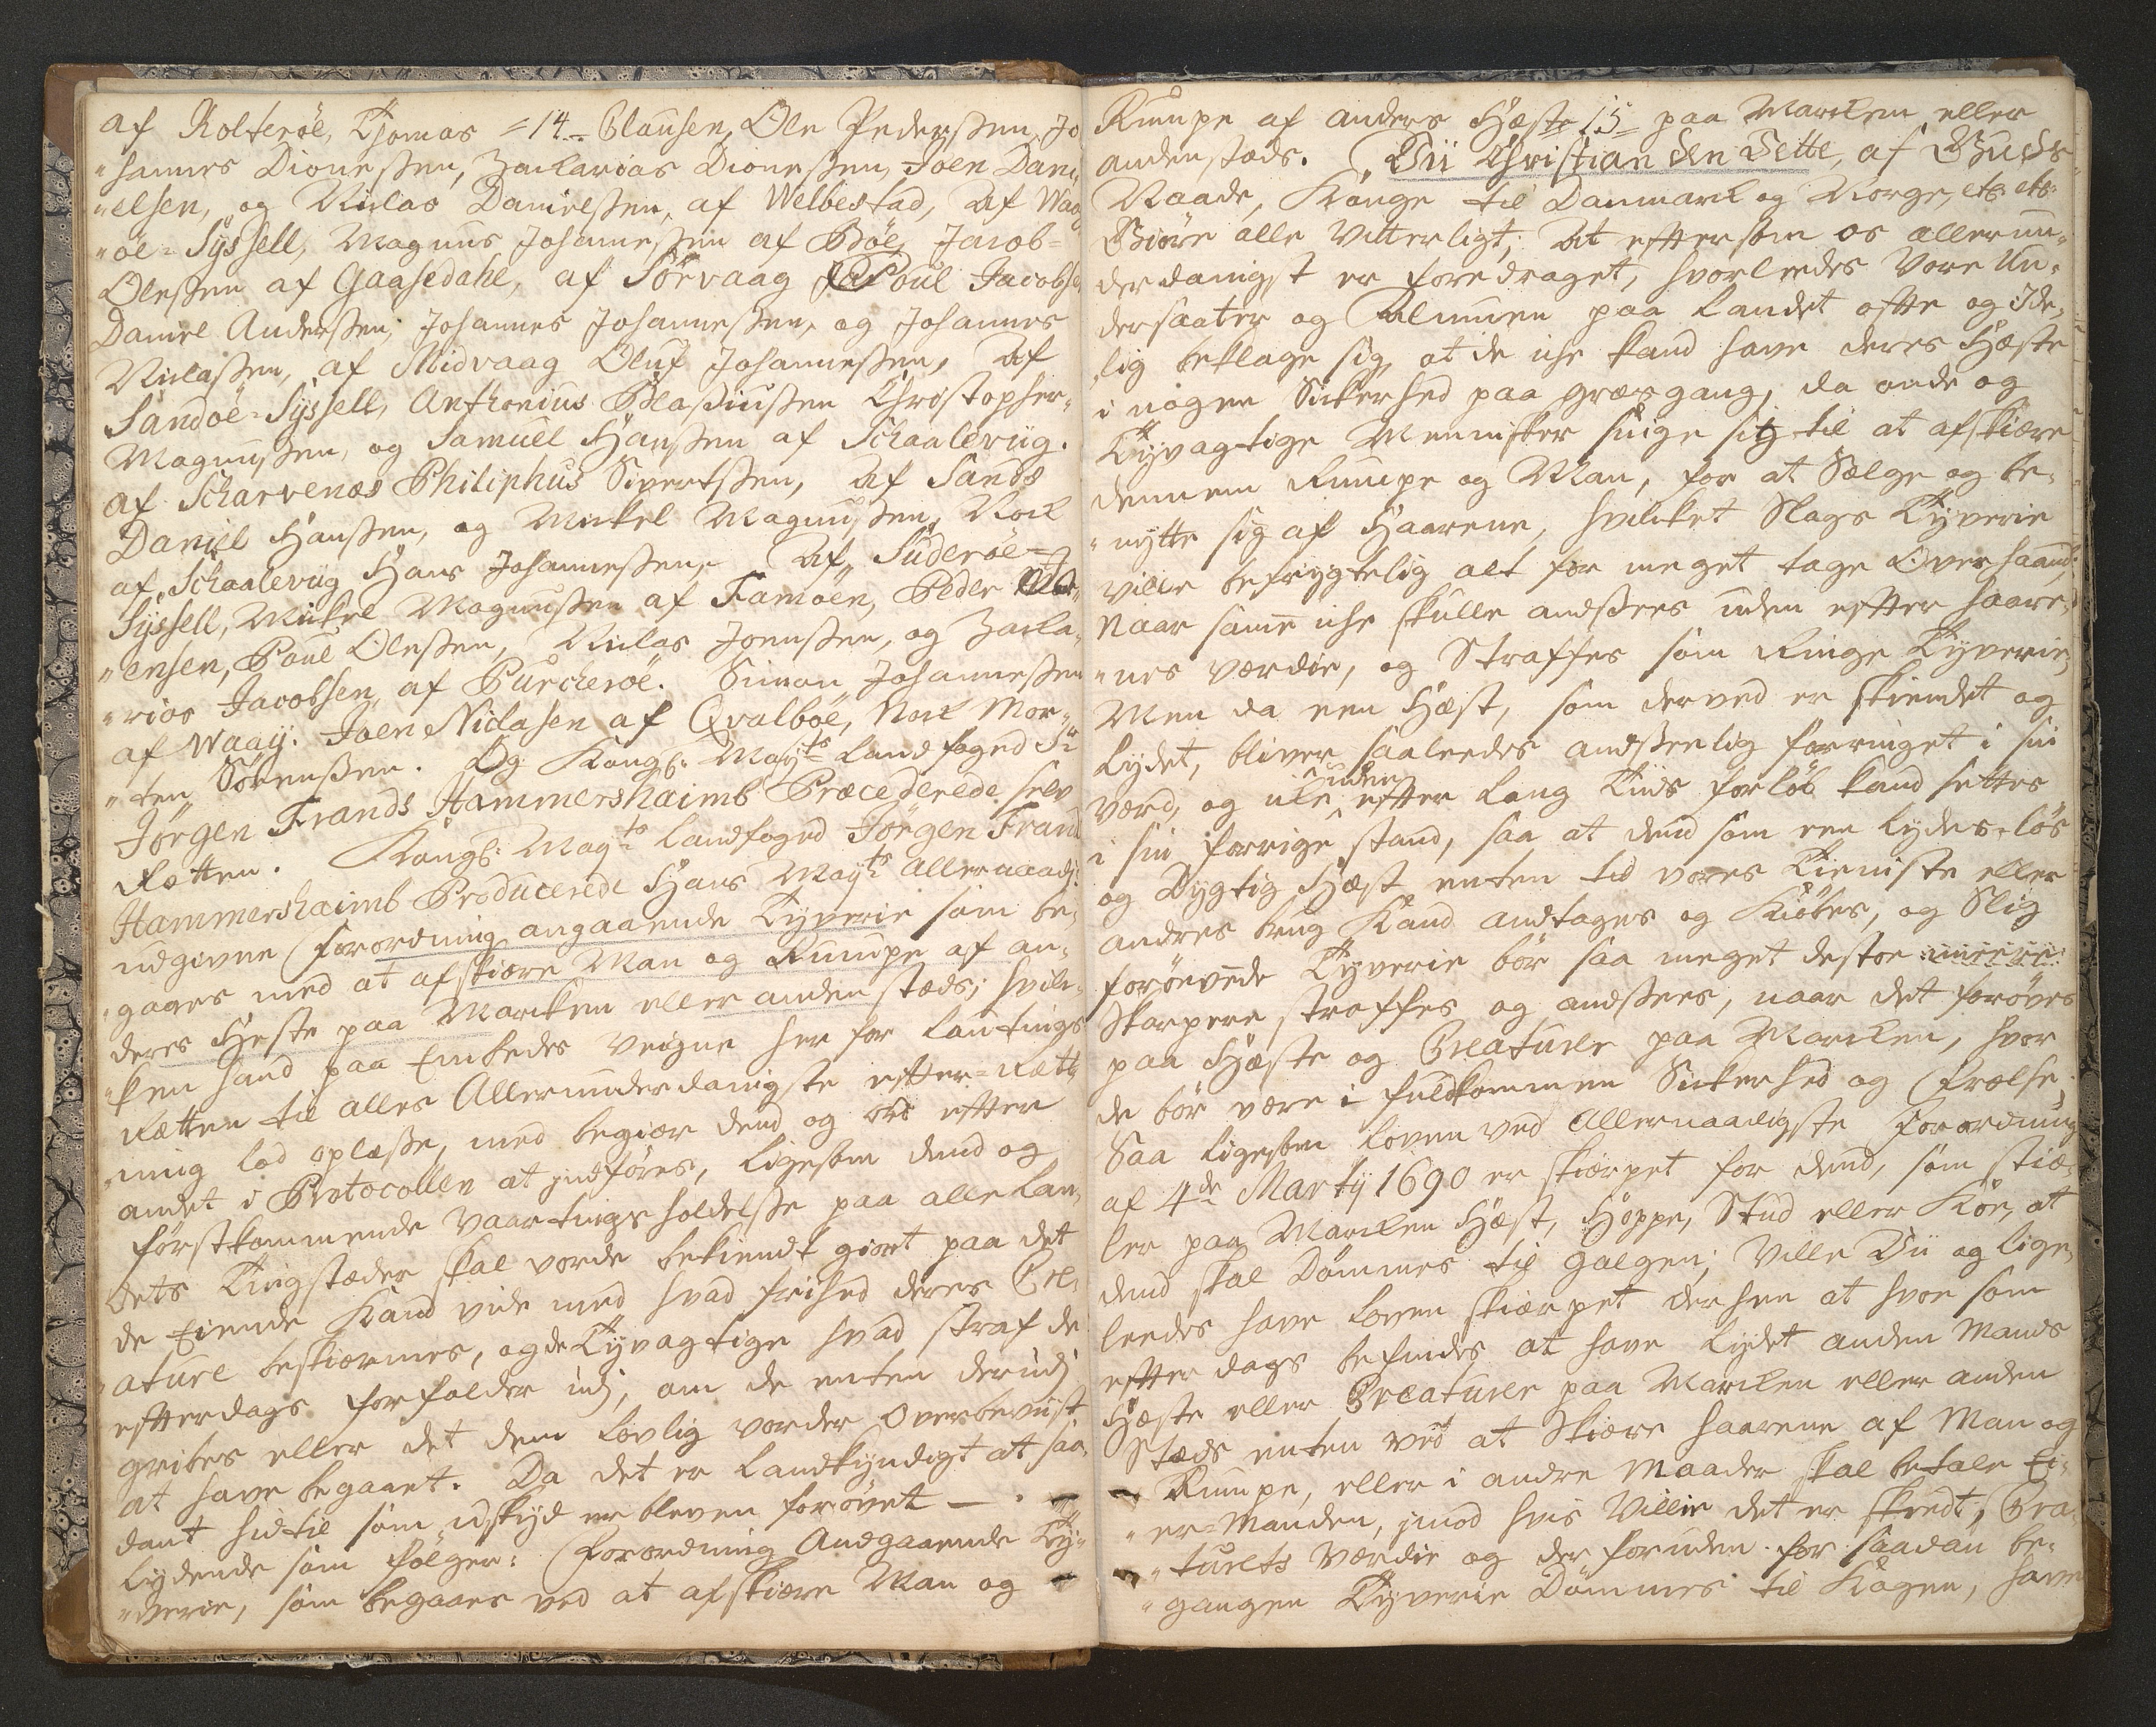 af Kolterøe, Thomas =14= Clausen, Ole Pedersen, Jo
„hannes Dionessen, Zacharias Dionessen, Joen Dani„
„elsen, og Niclas Danielssen, af Welbestad, Af Waag
„øe=Syssell, Magnus Johannessen af Bøe, Jacob=
Olessen af Gaasedahl, af Sørvaag Poul Jacobse
Daniel Anderssen, Johannes Johannessen, og Johannes
Niclassen, af Midvaag Oluf Johannessen, Af
Sandøe=Syssell, Anthonius Blasiussen Christopher„
Magnussen, og Samuel Hanssen af Schaalevüg.
af Scharvenæs Philiphus Sivertssen, Af Sands
Daniel Hanssen, og Mickel Magnussen, Nock
af Schaalevüg Hans Johannessen, Af Suderøe=
Syssell, Mickel Magnussen af Famöen, Peder
„ensen, Poul Olessen, Niclas Joenssen, og Zacha„
„rias Jacobsen, af Purcherøe. Simon Johannessen
af Waaÿ. Joen Niclasen af Qvalbøe, Nock Mor„
„ten Sørenssen. Og Kongl: Maÿts Landfoged Sr
Jørgen Frands Hammershaimb Præcederede selv
Rætten. Kongl: Maÿts Landfoged Jørgen Frand
Hammershaimb Producerede Hans Maÿts Allernaadi:
udgivne Forordning angaaende Tyverie som be„
„gaaes med at afskiære Man og Rumpe af an„
deres Heste paa Marcken eller anden stæds; hvil„
„ken hand paa Embedes Veigne her for Lautings
Rætten til alles Allerunderdanigste efter=ræt
„ning lod oplæsse, med begiær dend og ord efter
andet i Protocollen at indføres, ligesom dend og
førstkommende Vaartings holdelsse paa alle Lan„
dets Tingstæder skal vorde bekiendt giort paa det
de Eiende Kand vide med hvad frihed deres Cre„
„ature beskiermes, og de Tyvagtige hvad straf de
efterdags forfalder udj, om de enten derudj
gribes eller det dem Lovlig vorder Overbeviist
at have begaaet. Da det er Landkyndigt at saa„
dant hidtil som udskyd er bleven forøvet —
Lydende som følger: Forordning Andgaaende Ty„
„verie, som begaaes ved at afskiære Man og
Rumpe af anders Hæste 15= paa Marcken eller
andenstæds. Wii Christian den Siette, af Guds
Naade, Konge til Danmarck og Norge, etc etc
Giøre alle Vitterligt, At eftersom os allerun„
derdanigst er foredraget, hvorleedes Vore Un„
dersaater og Almuen paa Landet ofte og Ide„
„lig beklage sig, at de iche kand have deres Hæste
i nogen Sickerhed paa græsgang, da onde og
Tyvagtige Mennisker snige sig til at afskiære
dennem Rumpe og Man, for at Sælge og be„
„nytte sig af Haarene, hvilcket Slags Tyverie
ville befrygtelig alt for meget tage Overhaand,
Naar samme iche skulle andssees uden efter haare„
„nes værdie, og Straffes som Ringe Tyverie,
Men da een Hæst, som derved er skiendet og
Lydet, bliver saaleedes andsseelig forringet i sin
værd, og icke uden efter Lang Tiids forløb kand settes
i sin forrige stand, saa at dend som een Lydes=løs
og Dygtig Hæst enten til vores Tieniste eller
andres brug Kand andtages og Kiøbes, og Slig
forøevende Tyverie bør saa meget destoe meere
Skarpere straffes og andssees, naar det forøves
paa Hæste og Creature paa Marcken, hvor
de bør være i fuldkommen Sickerhed og Frælse,
Saa ligesom Loven ved Allernaadigste Forordning
af 4de Martÿ 1690 er skierpet for dend, som stiæ„
ler paa Marcken Hæst, Hoppe, Stud eller Køe, at
dend skal Dømmes til Galgen; Ville Vii og lige„
leedes have Loven skiærpet derhen at hvo som
efter dags befindes at have Lydet anden Mands
Hæste eller Creature paa Marcken eller anden
Stæds enten ved at skiære haarene af Man og
Rumpe, eller i andre Maader skal betale Ei„
„er=Manden, imod hvis Villie det er skeedt, Crea„
„turets Værdie og der foruden for saadan be„
„gangen Tyverie Dømmes til Kagen, have